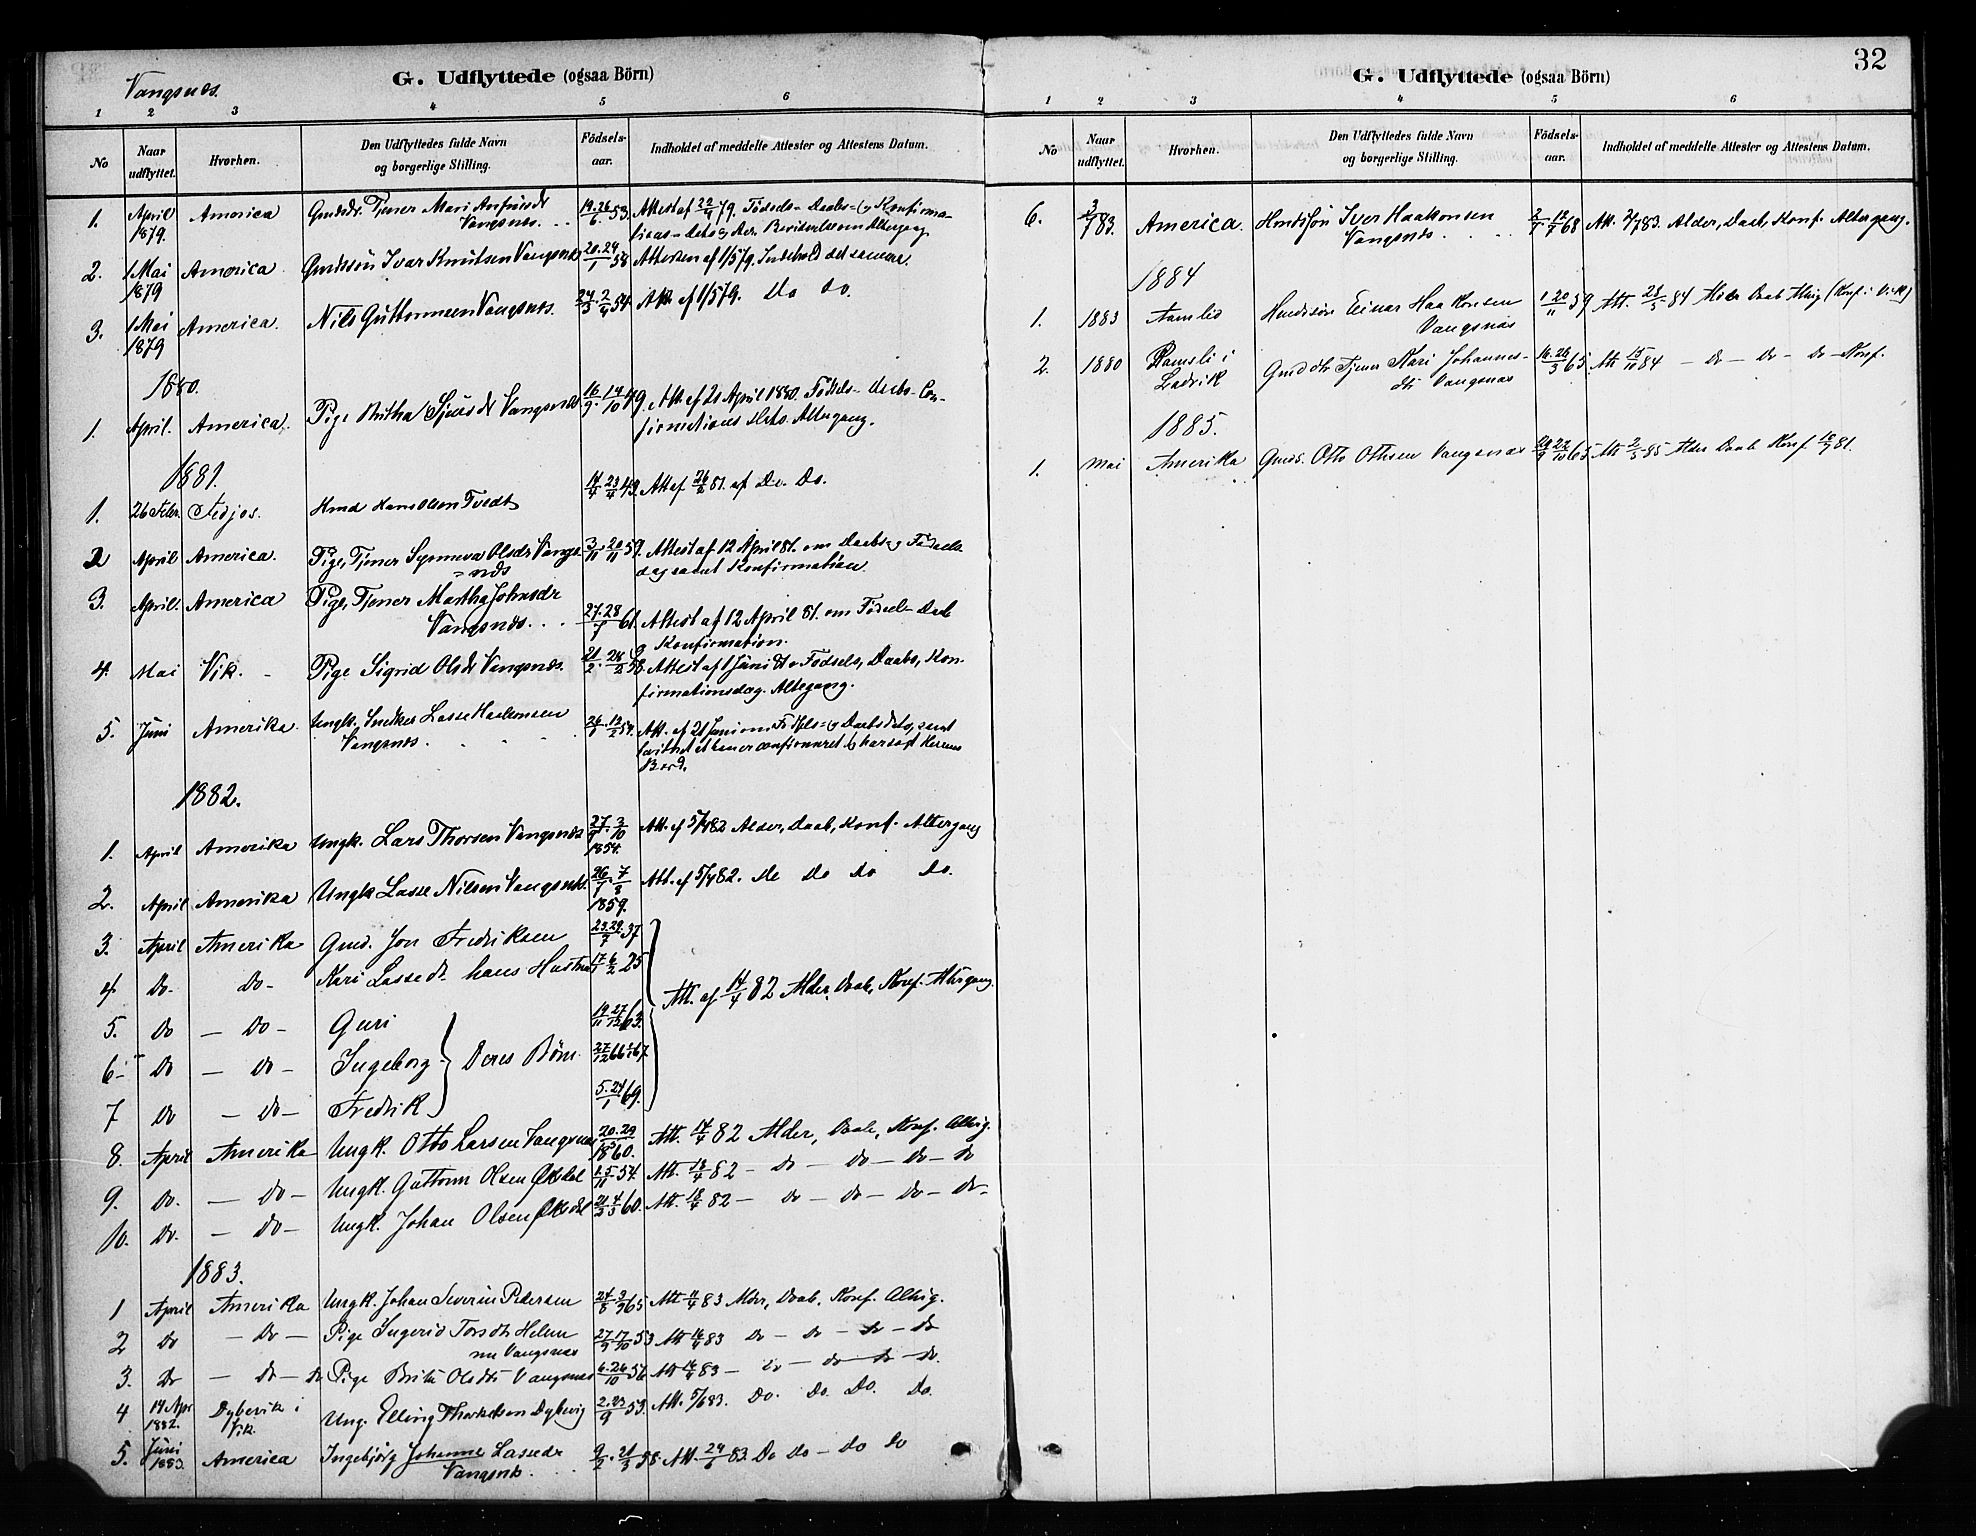 Vangsnes.
G. Udflyttede (ogsaa Börn)
1 2 3 4 5 6
No
Naar udflyttet.
Hvorhen.
Den Udflyttedes fulde Navn og borgerlige Stilling.
Födsels-aar.
Indholdet af meddelte Attester og Attestens Datum.
1. April 1879. America Tjener Mari Vangsnes. 19. 26/6 53. Attest af 22/4 79. Födsels- Daabs- og Konfirma-
2. 1 Mai 1879 America Ivar Knutsen Vangsnes 20. 24/1 58 Attesten af 1/5 79. Indehold det samme.
3. 1 Mai 1879 America. Nils Guttormsen Vangsnes. 24/3 2/4 54 Att. af 1/5 79. Do do.
1880.
1. April. America. Pige Britha Sjursdr Vangsnes 16/9 14/10 49. Att. af 21 April 1880. Födsels- Daabs- Con-
firmations Altergang.
1881.
1. 26 Febr. Fedjos. Tvedt 14/4 23/4 43. Att af 26/2 81. af Do. Do.
2 April America. Pige, Tjener Synneva Olsdr Vangs-
nes 3/11 20/11 59. Attest af 12 April 81. om Daabs og Födsels
dag samt Konfirmation.
3. April. America Pige, Tjener Martha Johnsdr
Vangsnes. 27. 28/7 61. Attest af 12 April 81. om Födsel- Daab
& Konfirmation.
4. Mai Vik. Pige Sigrid Olsdr Vangsnes. 21/2 28/2 58. Attest af 1 Juni 81 Födsels, Daabs, Kon-
firmationsdag. Altegang.
5. Juni Amerika. Ungk. Snedker Lasse Haakonsen
Vangsnes. 26/1 12/2 54. Att. af 21 Juni om Födsels- og Daabs samt
Bord.
1882.
1. April Amerika Ungk. Lars Thorsen Vangsnes 27/9 3/10 1854. Att. af 5/4 82 Alder, Daab, Konf. Altergang
2. April Amerika Ungk Lasse Nilsen Vangsnes. 26/1 7/3 1859. Att. af 5/4 82. do Do do Do.
3. April Amerika Gmd. Jon Fredriksen 23. 29/7 37
4 Do. Do- Kari Lassedr hans Hustru 17/1 6/2 25 Att. af 14/4 82 Alder, Daab, Konf. Altergang.
5. Do — Do - Guri 19/11 27/12 63.
6 Do — Do - Ingeborg } Deres Börn. 27/12 66 67
7 Do — Do - Fredrik 5. 24/1 69.
8. April Amerika Ungk. Otto Larsen Vangsnes 20. 29 1860. Att. 14/4 82 Alder, Daab, Konf. Altrg.
9. Do. — Do — Ungk. Guttorm Olsen Öksdal 1. 5/11 54. Att. 18/4 82 — Do — Do — Do — Do
10. Do. — Do — Ungk. Johan Olsen Öksdal 21/2 4/3 60. Att. 18/4 82 — Do — Do — Do — Do-
1883.
1 April Amerika Ungk. Johan Severin Pedersen 24/8 3/9 65 Att 11/4 83 Alder, Daab, Konf. Altrg.
2 Do — Do — Pige Ingerid Torsdtr Helen
nu Vangsnes 27/9 17/10 53 Att 14/4 83 Do — Do — Do — Do
3. Do — Do — Pige Brita Olsdtr Vangsnes 6. 26/10 56 Att 14/4 83 — Do — Do — Do — Do.
4 14 Apr 1882. Dybevik i Vik. Ung. Elling Thorkelsen Dybvig 2. 23/9 53. Att. 5/6 83. Do. Do. Do. Do.
5. Juni 1883. America Ingebjörg Johanne Lassedr
Vangsnes. 9/2 21/3 58. Att. 24/6 83. Do Do — Do Do
32
G. Udflyttede (ogsaa Börn)
1 2 3 4 5 6
No
Naar udflyttet.
Hvorhen.
Den Udflyttedes fulde Navn og borgerlige Stilling.
Födsels-aar.
Indholdet af meddelte Attester og Attestens Datum.
6. 3/7 83. America. Iver Haakonsen
Vangsnes. 2/7 12/7 68 Att. 2/7 83. Alder, Daab, Konf. Altergang.
1884
1. 1883 Aamlid Einar Haakonsen
Vangsnes 1 20/11 59 Att. 28/5 84 Alder Daab Altrg (Konf. i Vik)
2. 1880 Ramsli i Ladvik Gmd dtr Tjener Kari Johannes-
dtr Vangsnes 16. 26/3 65. Att 15/10 84 — Do — Do — Do — Konf.
1885.
1. Mai Amerika Gmds. Otto Othsen Vangsnes 29/9 22/10 65 Att 2/5 85 Alder Daab Konf. 81.